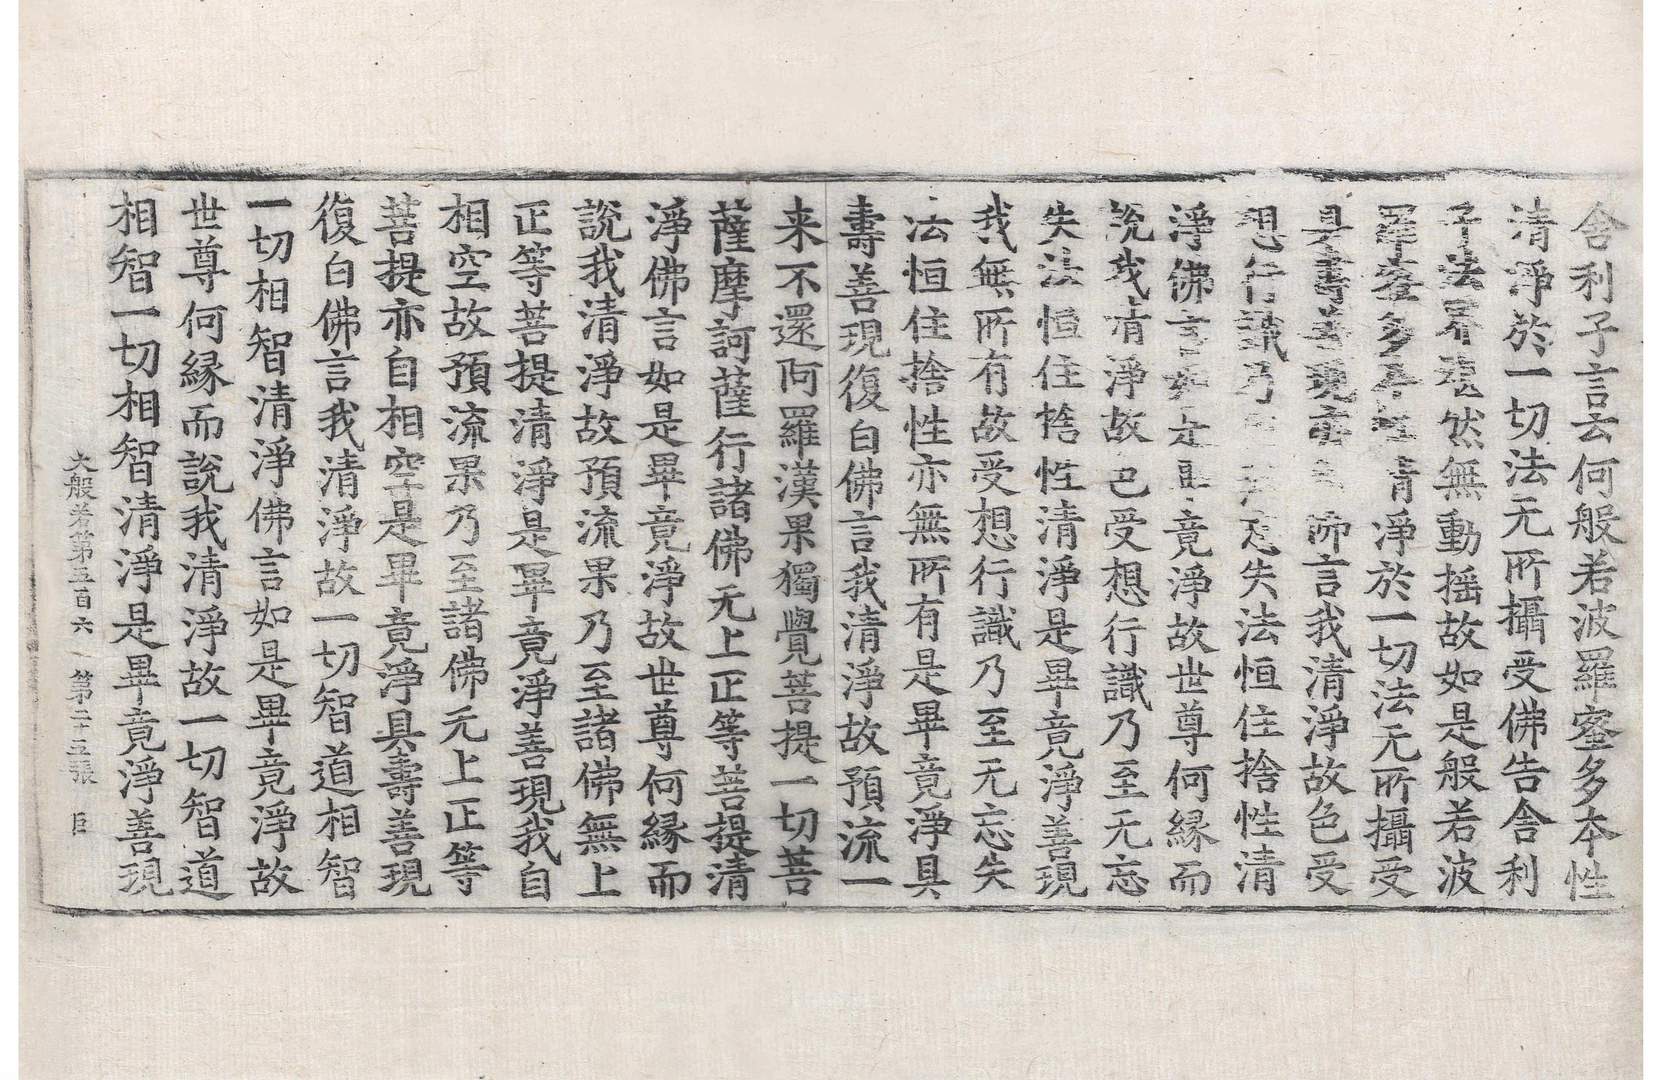 舍利子言云何般若波羅蜜多本性
清淨於一切法无所攝受佛告舍利
子法界凝然無動搖故如是般若波
羅蜜多本性清淨於一切法无所攝受
具壽善現亦佛言我清淨故色受
想行識乃忘失法恒住捨性清
淨佛言如是畢竟淨故世尊何緣而
說我清淨故色受想行識乃至无忘
失法恒住捨性清淨是畢竟淨善現
我無所有故受想行識乃至无忘失
法恒住捨性亦無所有是畢竟淨具
壽善現復白佛言我清淨故預流一
来不還阿羅漢果獨覺菩提一切菩
薩摩訶薩行諸佛无上正等菩提清
淨佛言如是畢竟淨故世尊何緣而
說我清淨故預流果乃至諸佛無上
正等菩提清淨是畢竟淨善現我自
相空故預流果乃至諸佛无上正等
菩提亦自相空是畢竟淨具壽善現
復白佛言我清淨故一切智道相智
一切相智清淨佛言如是畢竟淨故
世尊何緣而說我清淨故一切智道
相智一切相智清淨是畢竟淨善現
大般若第五百六 第二十五張 臣